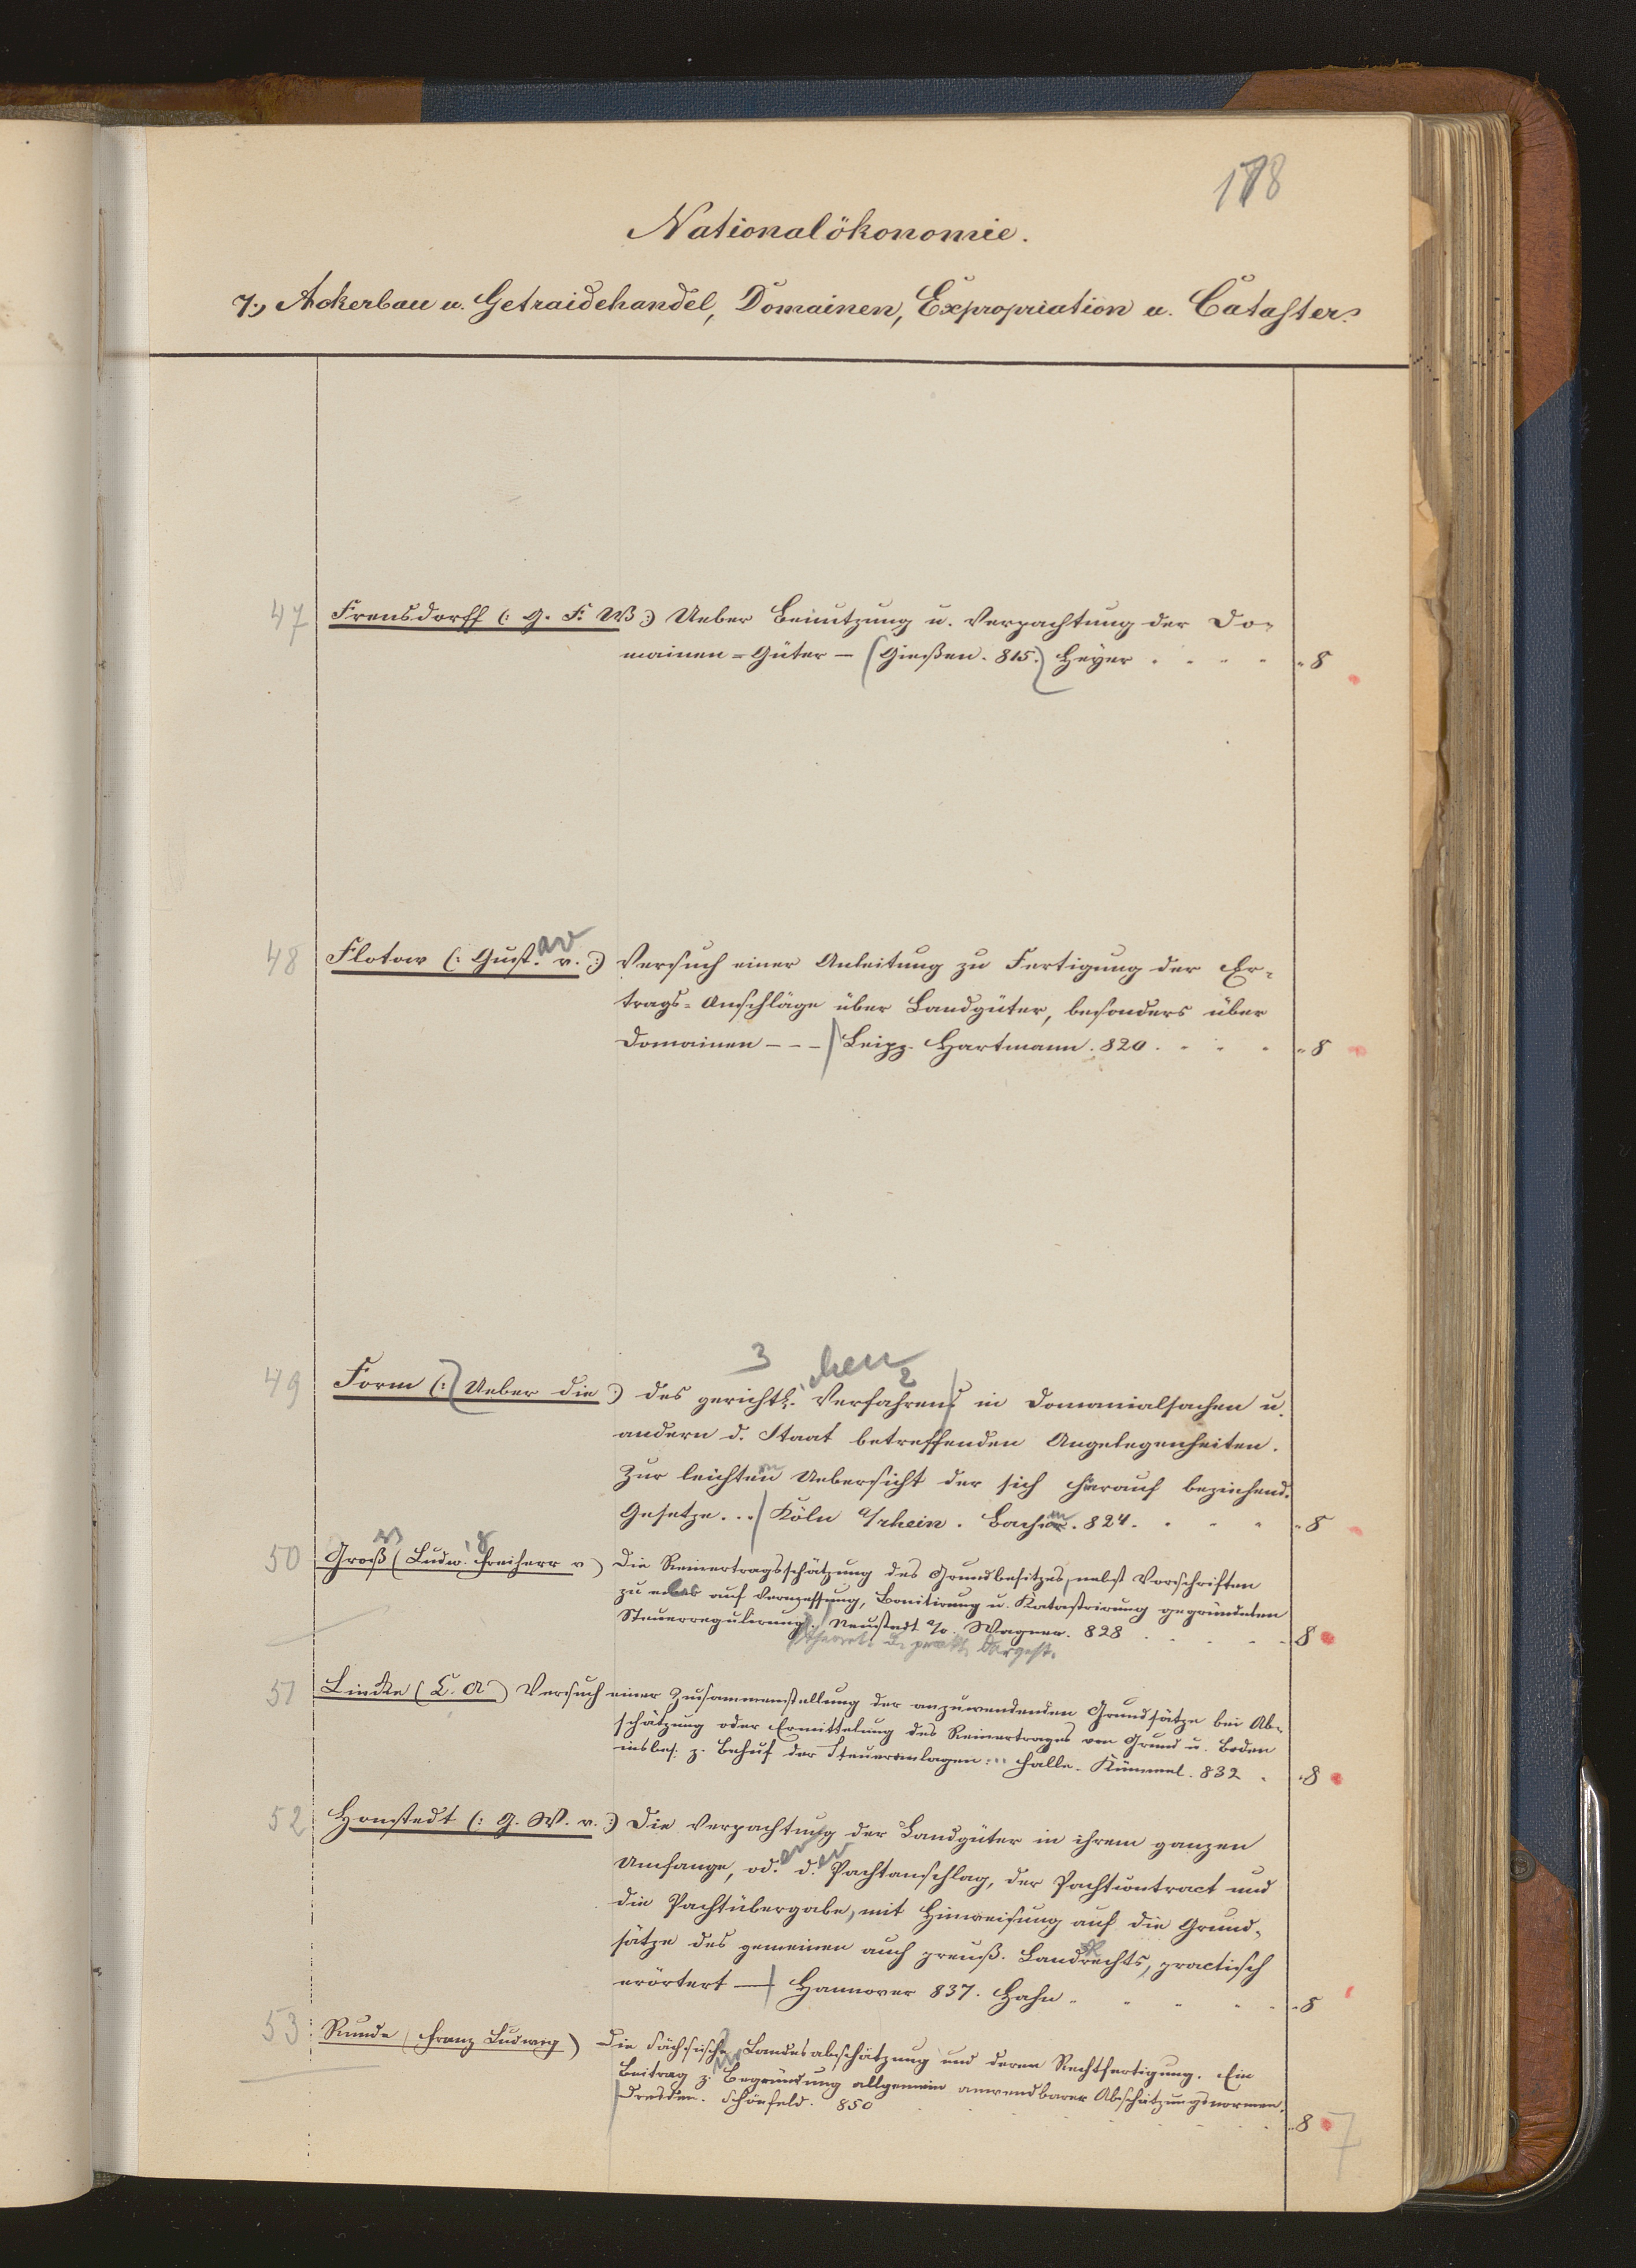 178
Nationalökonomie.
7.) Ackerbau u. Getraidehandel, Domainen, Expropriation u. Cataster.
47 Frensdorff (: G. F. W :) Ueber Benutzung u. Verpachtung der Do-
mainen-Güter — (Gießen. 815.) Heyer . . . . 8
av
48 Flotow (: Gust. v. :) Versuch einer Anleitung zu Fertigung der Er-
trags-Anschläge über Landgüter, besonders über
Domainen - - - / Leipz. Hartmann. 820 . . . . 8
3 chen 2
49 Form (: Ueber die :) des gerichtl. Verfahrens in Domanialsachen u.
andern d. Staat betreffenden Angelegenheiten.
Zur leichten Uebersicht der sich hierauf beziehend.
Gesetze . . . / Köln a/rhein. Bachem. 824 . . . . 8
50 Groß (Ludw. Freiherr v) Die Reinertragsschätzung des Grundbesitzes, nebst Vorschriften
zu auf Vermessung, Bonitirung u. Katastrirung gegründeten
Steuerregulirung. / Neustadt a/o. Wagner. 828 . . . . 8
theoret. u. prakt. dargest.
51 Lincke (L. A) Versuch einer Zusammenstellung der anzuwendenden Grundsätze bei Ab-
schätzung oder Ermittelung des Reinertrages von Grund u. Boden
insbes. z. Behuf der Steueranlagen . . . Halle. Kümmel. 832 . 8
52 Honstedt (: G. W. v. :) Die Verpachtung der Landgüter in ihrem ganzen
er er
Umfange, od. d. Pachtanschlag, der Pachtcontract und
die Pachtübergabe, mit Hinweisung auf die Grund-
sätze des gemeinen auch preuß. Landrechts, practisch
erörtert — / Hannover 837. Hahn . . . . 8
53 Runde (Franz Ludwig) Die Sächsische Landesabschätzung und deren Rechtfertigung. Ein
Beitrag z. Begründung allgemein anwendbarer Abschätzungsnormen.
Dresden. Schönfeld. 850 . . . . 8
7